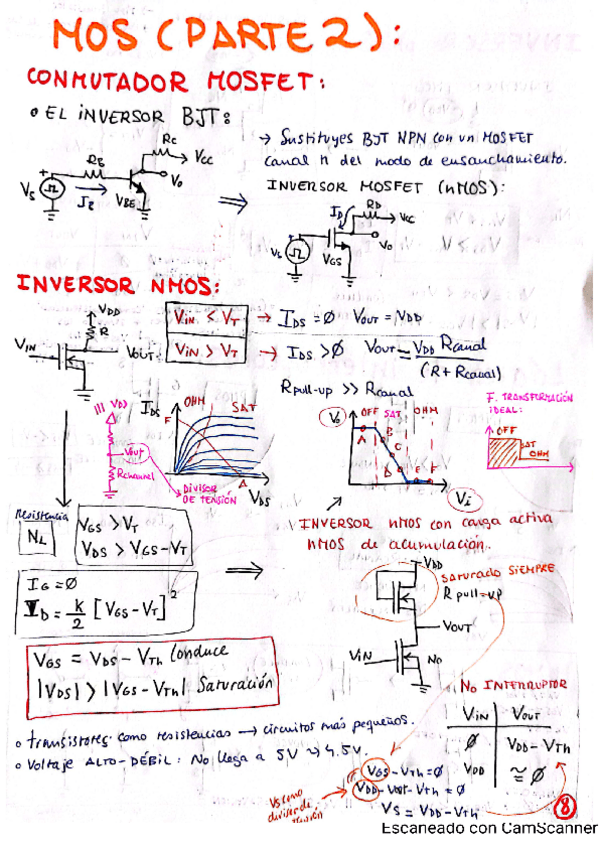 MOS (PARTE 2):
CONMUTADOR MOSFET:
• EL INVERSOR BJT:
→ Sustituyes BJT NPN con un MOSFET
canal n del modo de ensanchamiento.
INVERSOR MOSFET (nMOS):
RB
RC
VCC
Vo
VS
VBE
ID
RD
VCC
Vo
VS
VGS
INVERSOR NMOS:
VDD
R
VIN
VOUT
VIN < VT → IDS = Ø VOUT = VDD
VIN > VT → IDS > Ø VOUT = VDD Rcanal / (R + Rcanal)
Rpull-up >> Rcanal
VDD
Vout
Rchannel
→ DIVISOR DE TENSIÓN
IDS
OHM
SAT
F
A
VDS
Vo
OFF SAT OHM
A
B
C
D
E
F
Vi
F. TRANSFORMACIÓN
IDEAL:
OFF
SAT
OHM
Resistencia
NL
VGS > VT
VDS > VGS - VT
IG = Ø
ID = k/2 [VGS - VT]²
INVERSOR nMOS con carga activa
nMOS de acumulación.
VDD
SATURADO SIEMPRE
R pull-up
VOUT
VIN
NO
VGS = VDS - VTh Conduce
|VDS| > |VGS - VTh| Saturación
No INTERRUPTOR
VIN VOUT
Ø VDD - VTh
VDD ≅ Ø
• transistores como resistencias → circuitos más pequeños.
• Voltaje ALTO-DÉBIL: No llega a 5V → 4.5V.
VGS - VTh = 0
VDD - Vout - VTh = 0
VS = VDD - VTh
VS como
divisor de
tensión
8
Escaneado con CamScanner